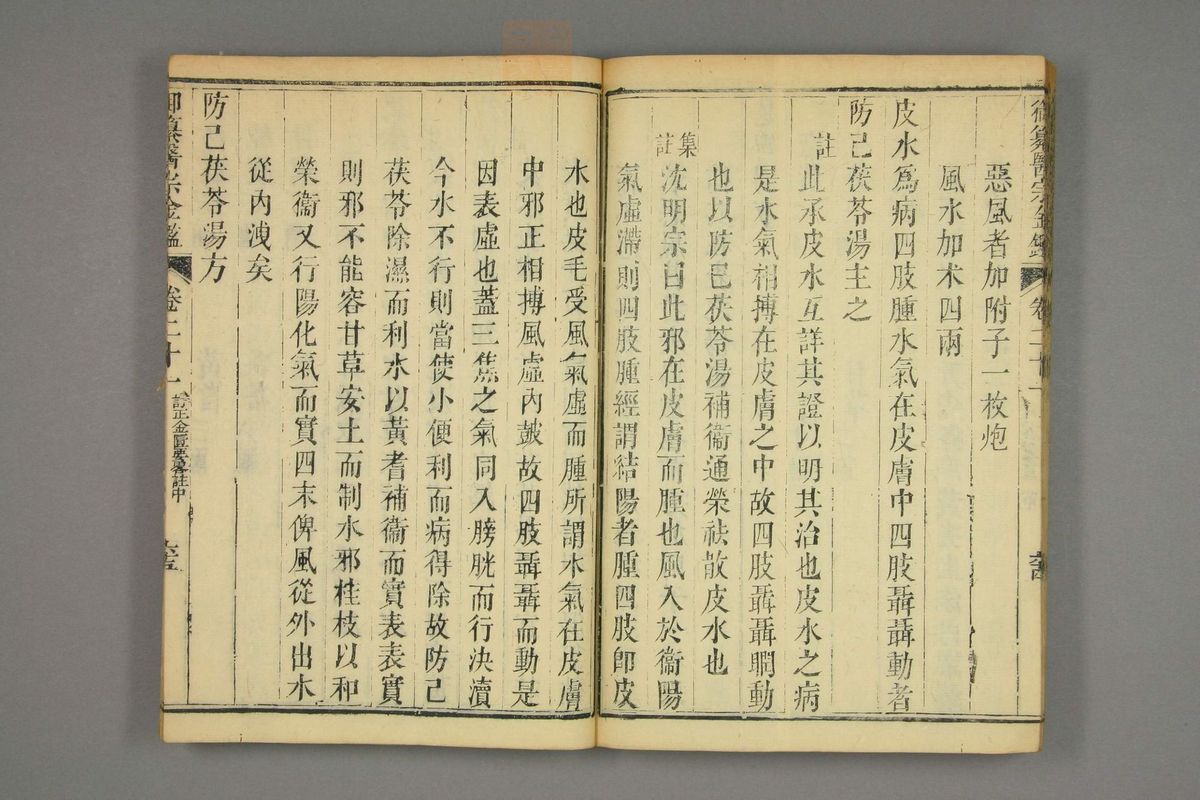 御纂醫宗金鑑 卷二十一
惡風者加附子一枚炮
風水加术四兩
皮水爲病四肢腫水氣在皮膚中四肢聶聶動者
防己茯苓湯主之
註此承皮水互詳其證以明其治也皮水之病
是水氣相搏在皮膚之中故四肢聶聶瞤動
也以防已茯苓湯補衞通榮祛散皮水也
集註沈明宗曰此邪在皮膚而腫也風入於衞陽
氣虛滯則四肢腫經謂結陽者腫四肢卽皮
水也皮毛受風氣虛而腫所謂水氣在皮膚
中邪正相搏風虛內皷故四肢聶聶而動是
因表虛也蓋三焦之氣同入膀胱而行決瀆
今水不行則當使小便利而病得除故防己
茯苓除濕而利水以黃耆補衞而實表表實
則邪不能容甘草安土而制水邪桂枝以和
榮衞又行陽化氣而實四末俾風從外出水
從內洩矣
防己茯苓湯方
御纂醫宗金鑑 卷二十一 訂正金匱要畧註中